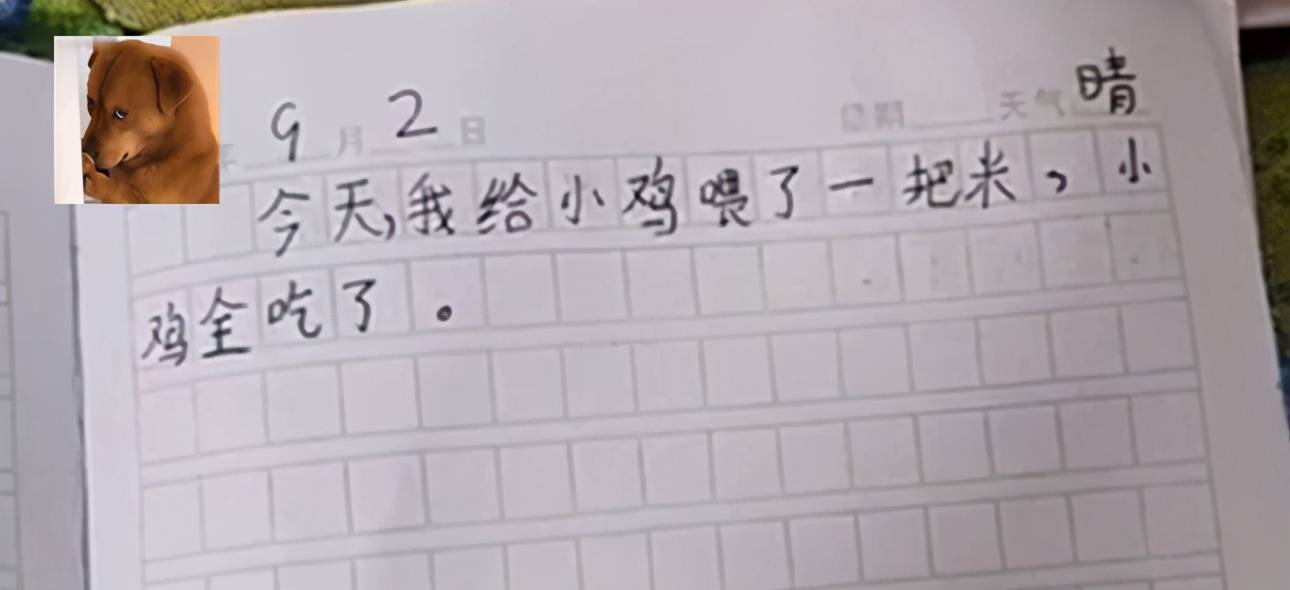 9月2日 星期 天气晴
今天,我给小鸡喂了一把米,小
鸡全吃了。